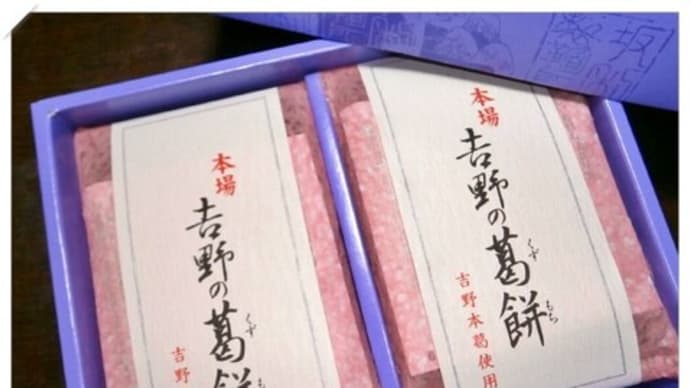 本場
吉野の葛餅
くず
もち
吉野本葛使用
本場
吉野の葛
くず
も
吉野